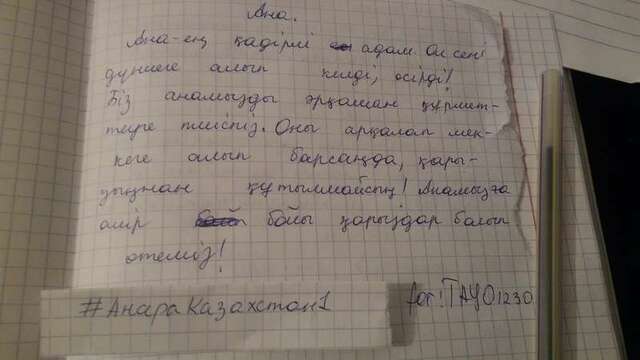 Ана.
Ана-ең қадірлі адам. Ол сені
дүниеге алып келді, өсірді!
Біз анамызды әрқашан құрмет-
теуге тиіспіз. Оны арқалап мек-
кеге алып барсаңда, қары-
зыңнан құтылмайсың! Анамызға
өмір бойы қарыздар болып
өтеміз!
#АнараКазахстан1
for: TAYO1230